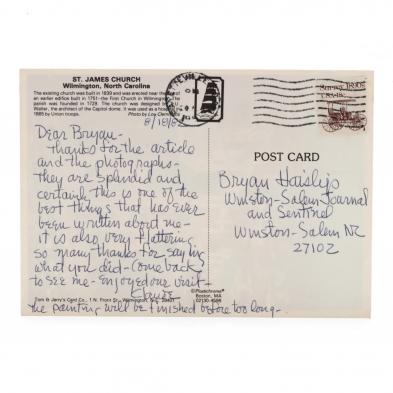 ST. JAMES CHURCH
Wilmington, North Carolina
The existing church was built in 1839 and was erected near the
an earlier edifice built in 1751—the First Church in Wilmington. The
parish was founded in 1729. The church was designed by U.
Walter, the architect of the Capitol dome. It was used as a hospital
1865 by Union troops. Photo by Loy
8/18/82
Dear Bryan—
thanks for the article
and the photographs—
they are splendid and
certainly this is one of the
best things that has ever
been written about me—
it is also very flattering
so many thanks for saying
what you did—come back
to see me—enjoyed our visit—
Claude
Tom & Jerry's Card Co., 1 N. Front St., Wilmington, N.C. 28401
the painting will be finished before too long—
Plastichrome®
Boston, MA
02130
Surrey 1890s
USA 18c
POST CARD
Bryan Haislip
Winston-Salem Journal
and Sentinel
Winston-Salem NC
27102